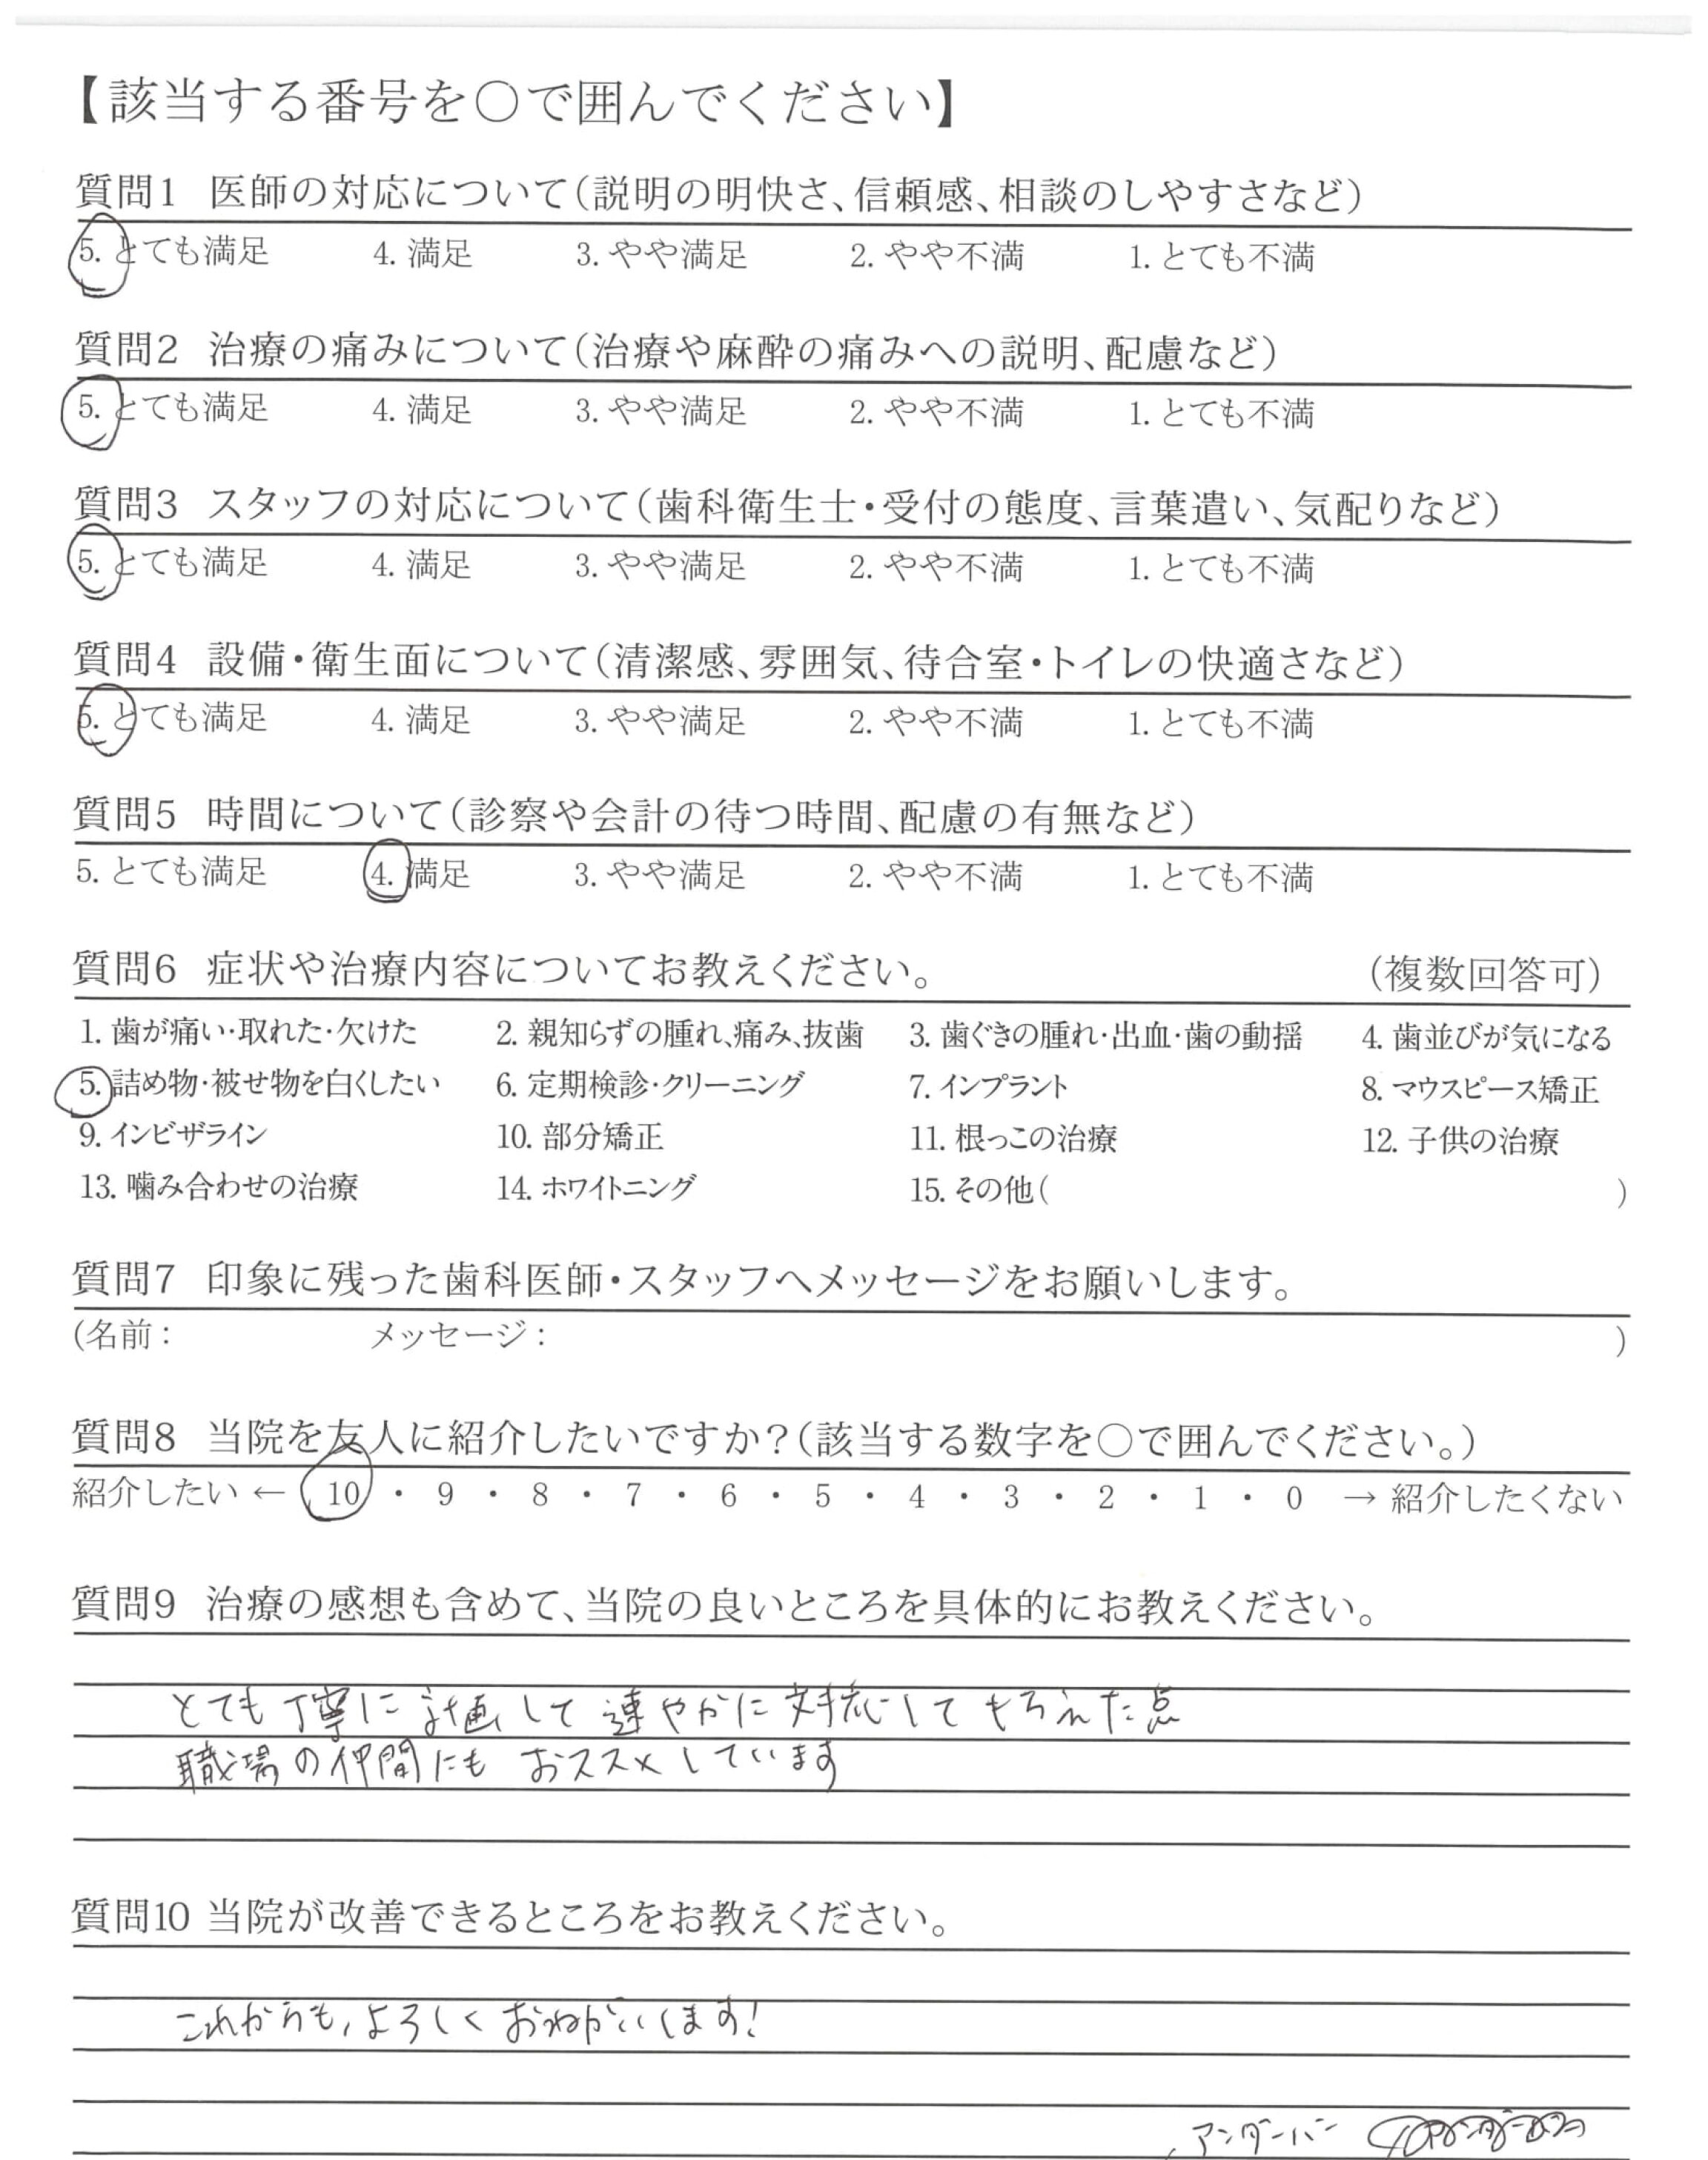 【該当する番号を○で囲んでください】
質問1 医師の対応について(説明の明快さ、信頼感、相談のしやすさなど)
5. とても満足 4. 満足 3. やや満足 2. やや不満 1. とても不満
質問2 治療の痛みについて(治療や麻酔の痛みへの説明、配慮など)
5. とても満足 4. 満足 3. やや満足 2. やや不満 1. とても不満
質問3 スタッフの対応について(歯科衛生士・受付の態度、言葉遣い、気配りなど)
5. とても満足 4. 満足 3. やや満足 2. やや不満 1. とても不満
質問4 設備・衛生面について(清潔感、雰囲気、待合室・トイレの快適さなど)
5. とても満足 4. 満足 3. やや満足 2. やや不満 1. とても不満
質問5 時間について(診察や会計の待つ時間、配慮の有無など)
5. とても満足 4. 満足 3. やや満足 2. やや不満 1. とても不満
質問6 症状や治療内容についてお教えください。 (複数回答可)
1. 歯が痛い・取れた・欠けた 2. 親知らずの腫れ、痛み、抜歯 3. 歯ぐきの腫れ・出血・歯の動揺 4. 歯並びが気になる
5. 詰め物・被せ物を白くしたい 6. 定期検診・クリーニング 7. インプラント 8. マウスピース矯正
9. インビザライン 10. 部分矯正 11. 根っこの治療 12. 子供の治療
13. 噛み合わせの治療 14. ホワイトニング 15. その他( )
質問7 印象に残った歯科医師・スタッフへメッセージをお願いします。
(名前: メッセージ: )
質問8 当院を友人に紹介したいですか?(該当する数字を○で囲んでください。)
紹介したい ← 10 ・ 9 ・ 8 ・ 7 ・ 6 ・ 5 ・ 4 ・ 3 ・ 2 ・ 1 ・ 0 → 紹介したくない
質問9 治療の感想も含めて、当院の良いところを具体的にお教えください。
とても丁寧に計画して速やかに対応してもらえた点
職場の仲間にもおススメしています
質問10 当院が改善できるところをお教えください。
これからも、よろしくおねがいします!
アンダーバー